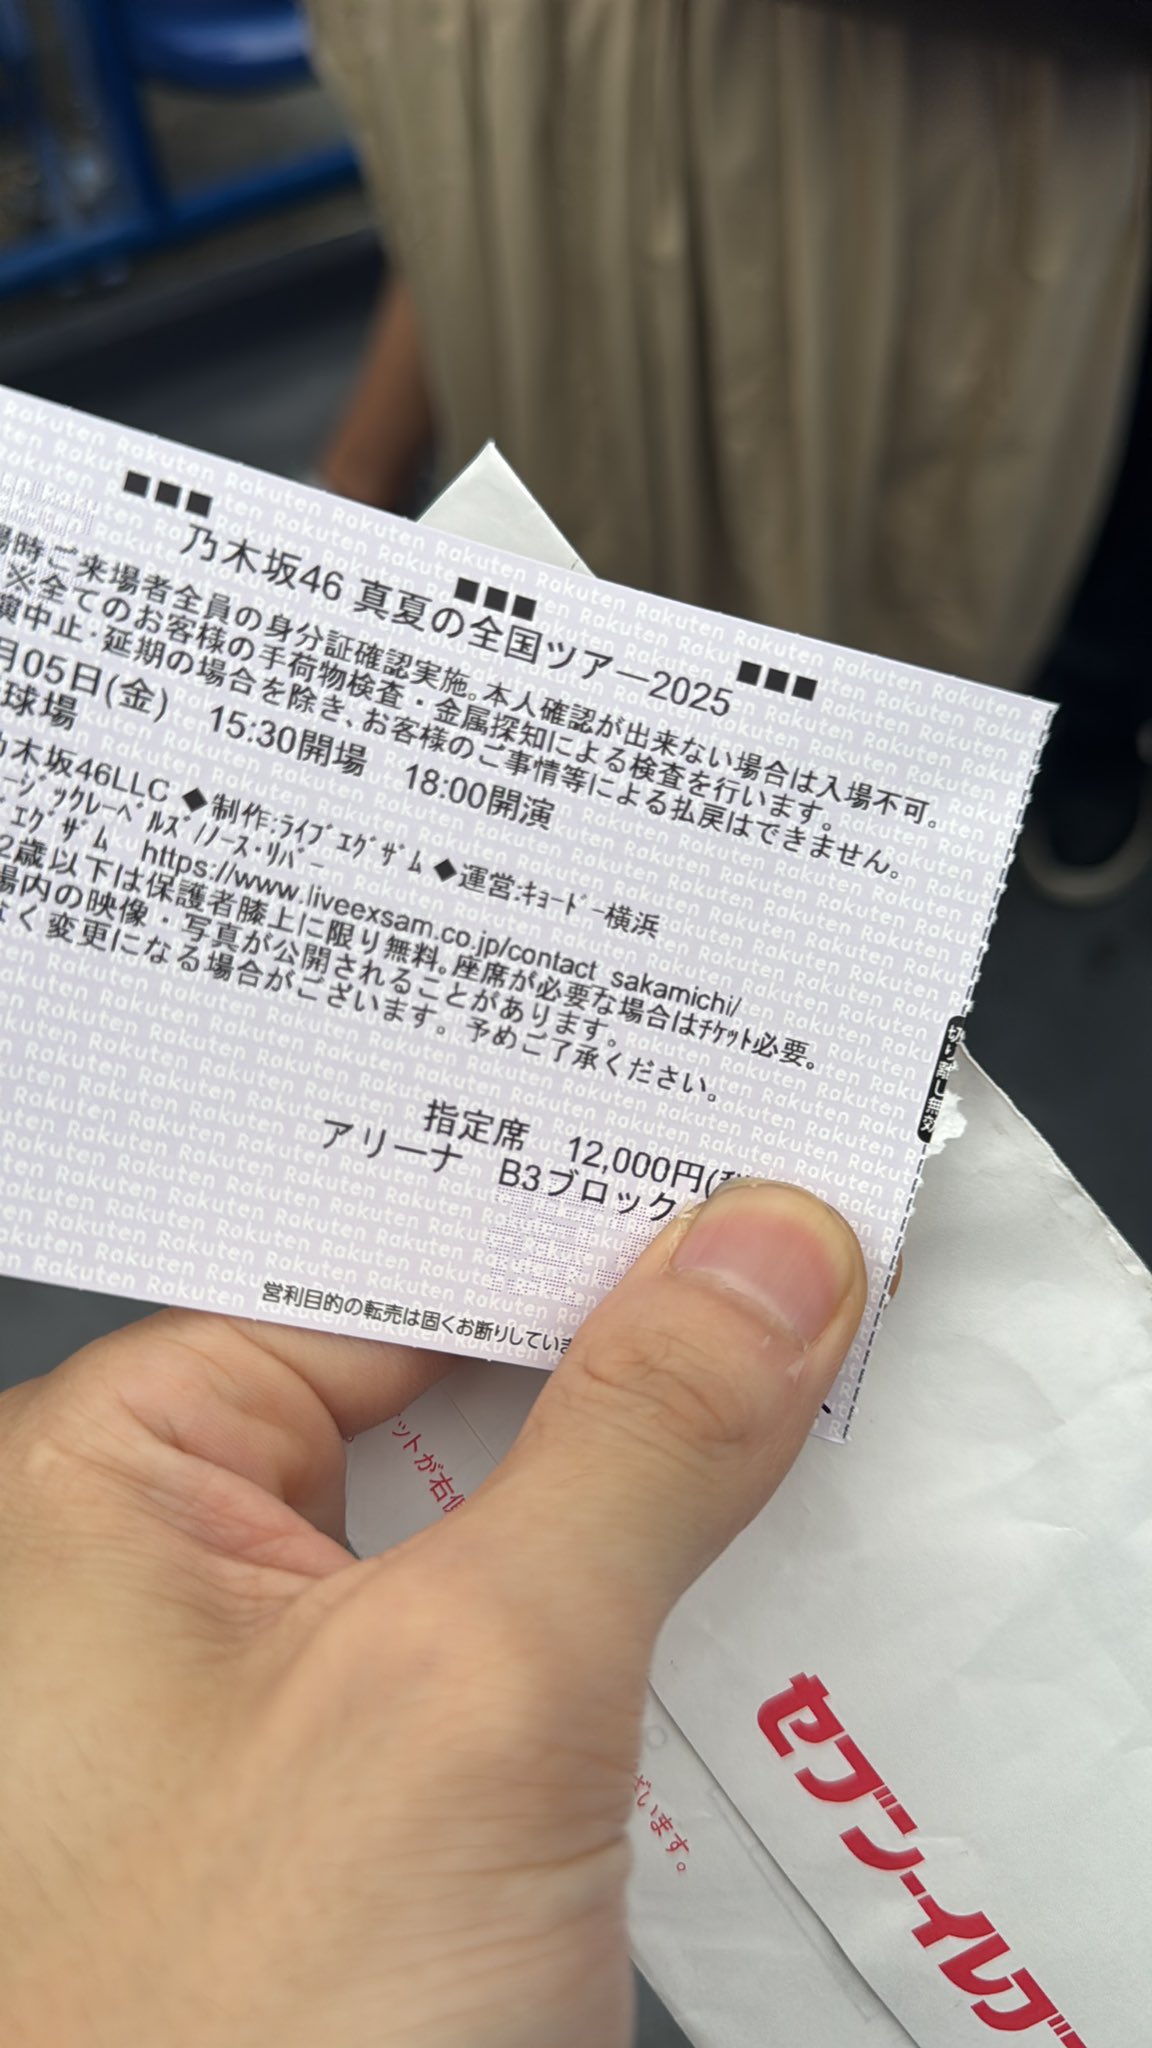 ■■■ ■■■ ■■■
乃木坂46 真夏の全国ツアー2025
場時ご来場者全員の身分証確認実施。本人確認が出来ない場合は入場不可。
※全てのお客様の手荷物検査・金属探知による検査を行います。
演中止・延期の場合を除き、お客様のご事情等による払戻はできません。
月05日(金) 15:30開場 18:00開演
球場
乃木坂46LLC ◆制作:ﾗｲﾌﾞｴｸﾞｻﾞﾑ ◆運営:ｷｮｰﾄﾞｰ横浜
ｰｼﾞｯｸﾚｰﾍﾞﾙｽﾞ/ﾉｰｽ･ﾘﾊﾞｰ
ｴｸﾞｻﾞﾑ https://www.liveexsam.co.jp/contact_sakamichi/
2歳以下は保護者膝上に限り無料。座席が必要な場合はﾁｹｯﾄ必要。
場内の映像・写真が公開されることがあります。
なく変更になる場合がございます。予めご了承ください。
指定席 12,000円(
アリーナ B3ブロック
営利目的の転売は固くお断りしていま
切り離し無効
Rakuten
ットが右側
ざいます。
セブン-イレブ